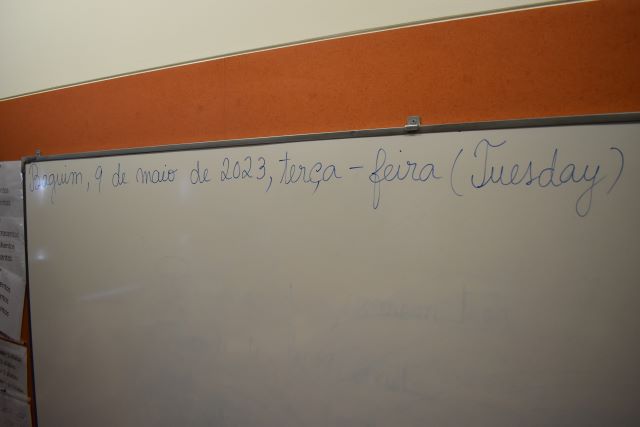 Baguim, 9 de maio de 2023, terça-feira (Tuesday)